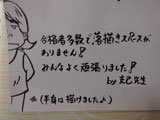 合格者多数で落描きスペースが
ありません!
みんなよく頑張りました!
by 先生
(半身は描けました♪)